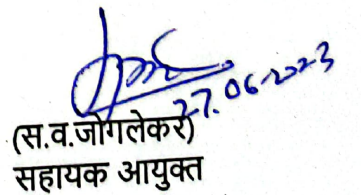 27.06.2023
(स.व.जोगलेकर)
सहायक आयुक्त